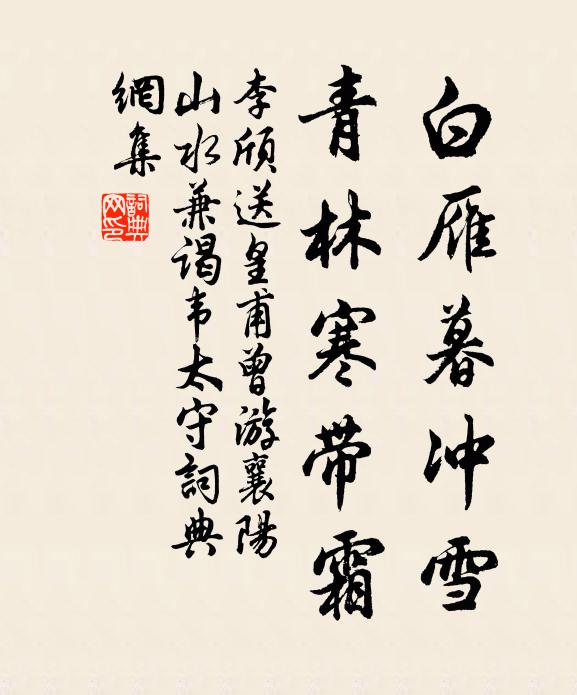 白雁暮冲雪
青林寒带霜
李颀送皇甫曾游襄陽
山水兼谒韦太守詞典
網集
詞典
网印